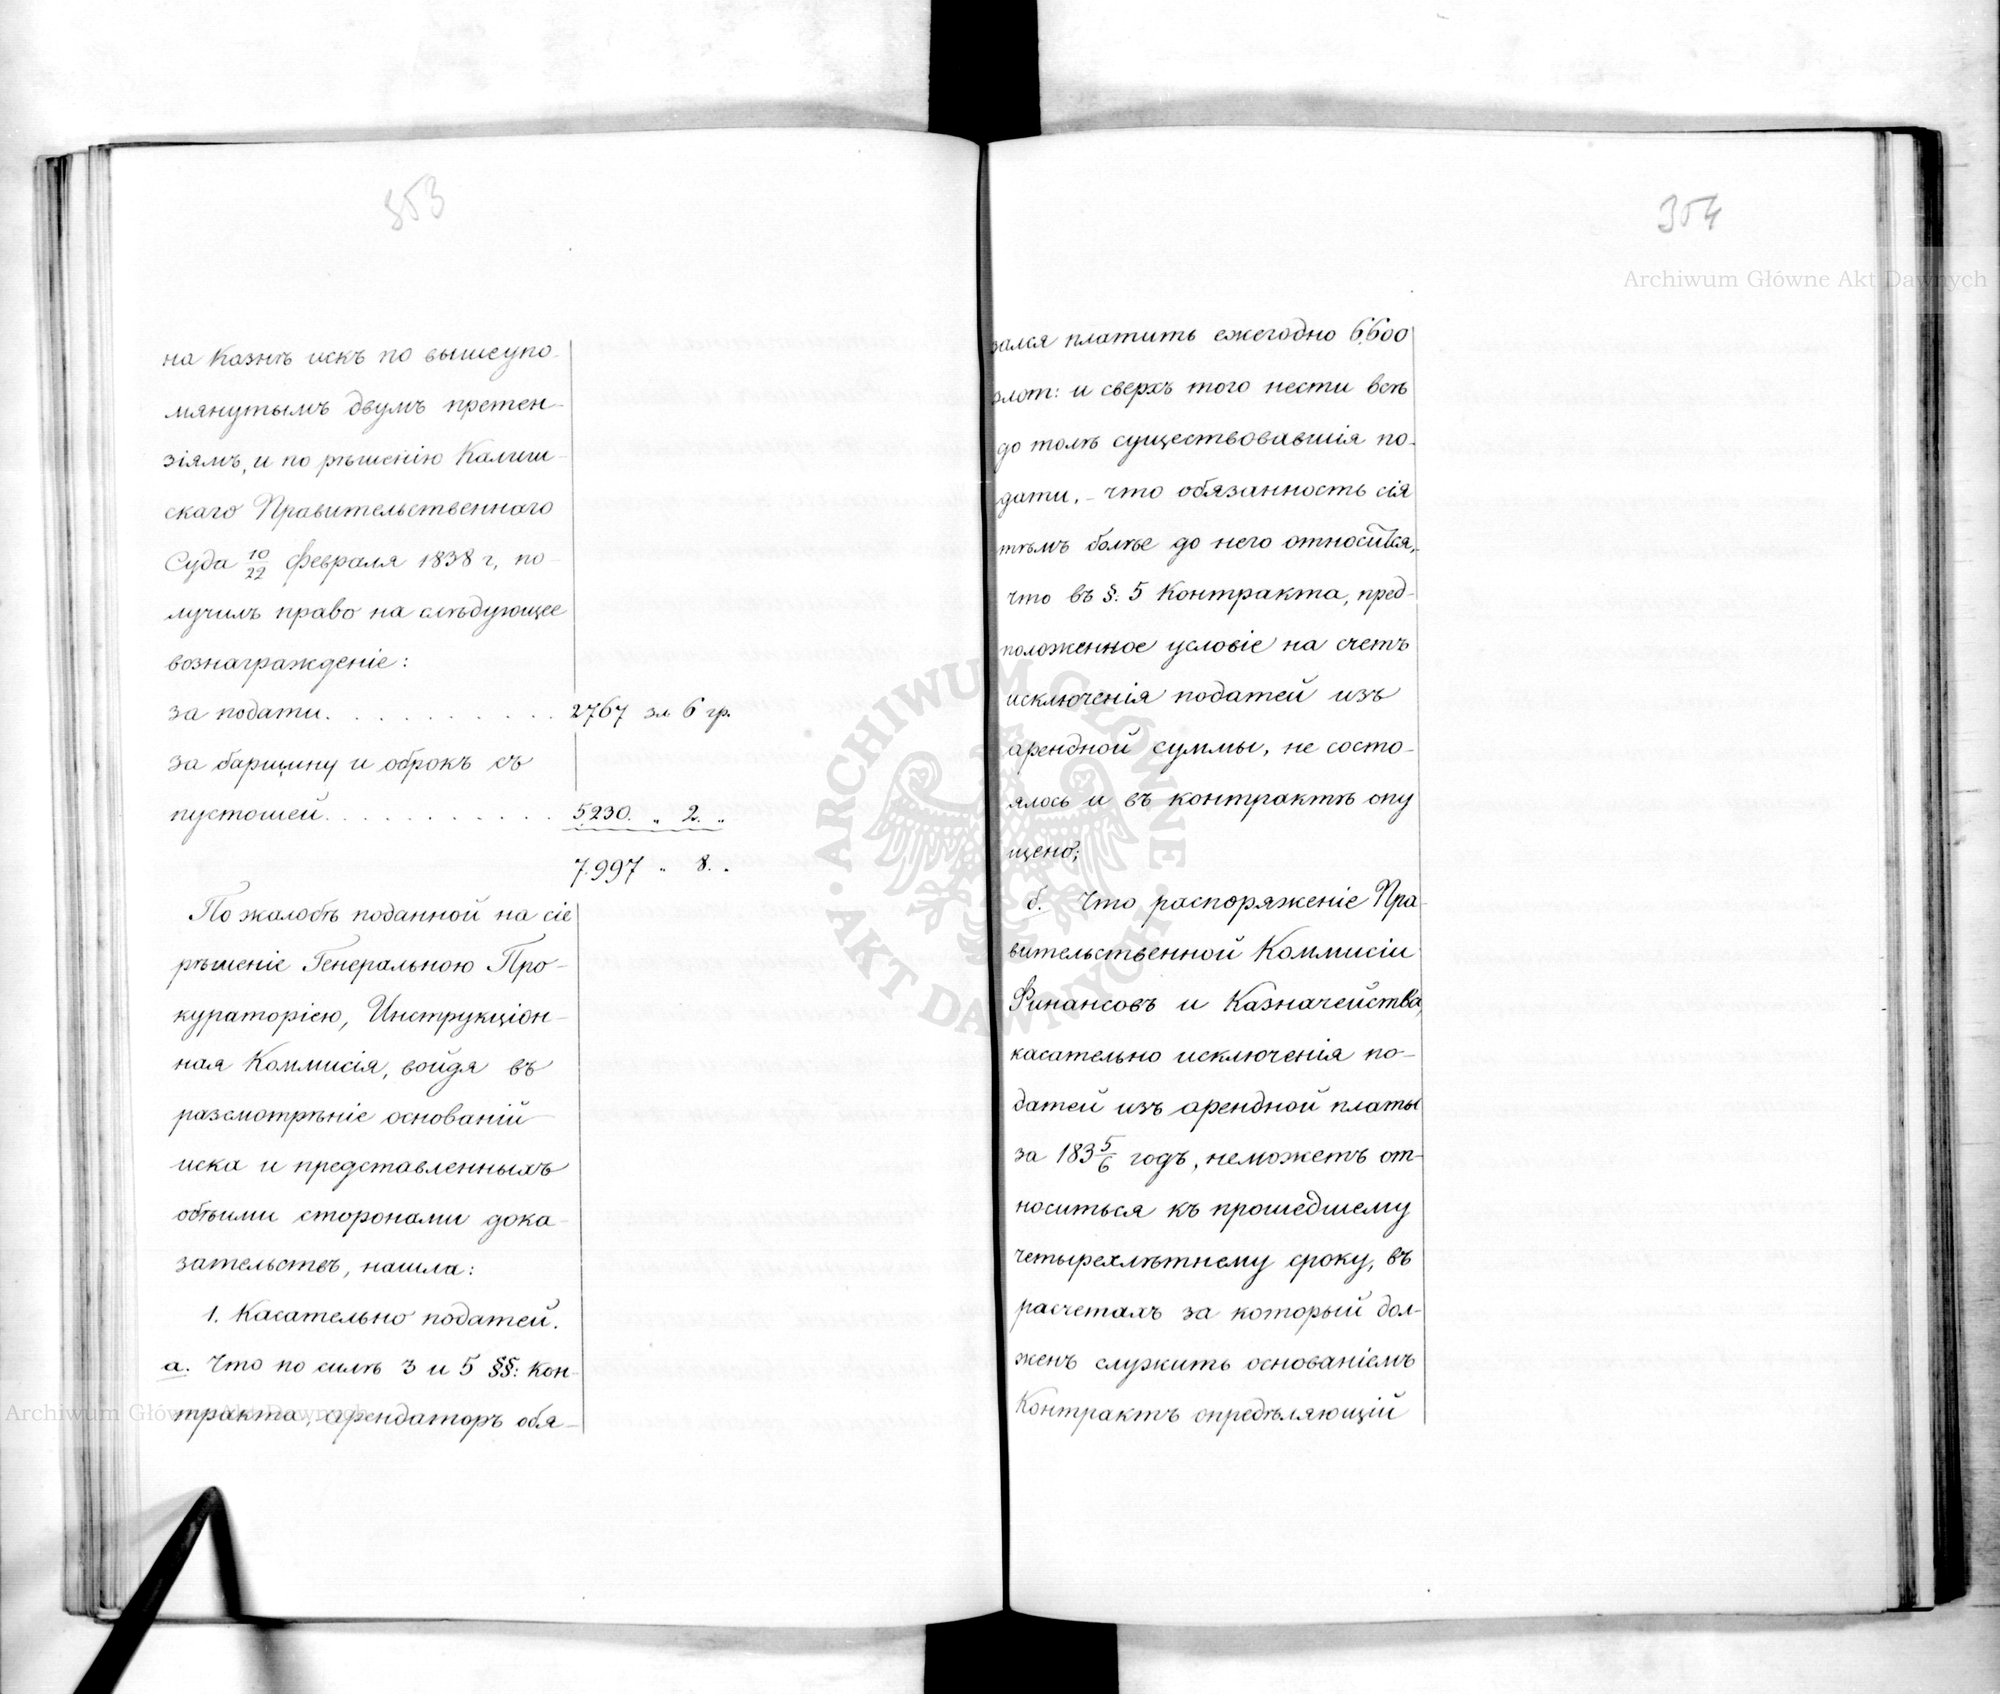 353
на Казнѣ искъ по вышеупо-
мянутымъ двумъ претен-
зіямъ, и по рѣшенію Калиш-
скаго Правительственнаго
Суда 10/22 февраля 1838 г, по-
лучилъ право на слѣдующее
вознагражденіе:
за подати. . . . . . . . . . . 2767 зл 6 гр.
за барщину и оброкъ съ
пустошей. . . . . . . . . . . 5230. „ 2. „
7.997 „ 8. „
По жалобѣ поданной на сіе
рѣшеніе Генеральною Про-
кураторіею, Инструкціон-
ная Коммисія, войдя въ
разсмотрѣніе основаній
иска и представленныхъ
обѣими сторонами дока-
зательствъ, нашла:
1. Касательно податей.
а. Что по силѣ 3 и 5 §§: Кон-
тракта, арендаторъ обя-
354
зался платить ежегодно 6,600
злот: и сверхъ того нести всѣ
до толѣ существовавшія по-
дати, - что обязанность сія
тѣмъ болѣе до него относится,
что въ §. 5 Контракта, пред-
положенное условіе на счетъ
исключенія податей изъ
арендной суммы, не состо-
ялось и въ контрактѣ опу
щено;
б. Что распоряженіе Пра-
вительственной Коммисіи
Финансовъ и Казначейства,
касательно исключенія по-
датей изъ арендной платы
за 183 5/6 годъ, неможетъ от-
носиться къ прошедшему
четырехлѣтнему сроку, въ
расчетахъ за который дол-
женъ служить основаніемъ
Контрактъ опредѣляющій
Archiwum Główne Akt Dawnych
Archiwum Główne Akt Dawnych
ARCHIWUM GŁÓWNE AKT DAWNYCH